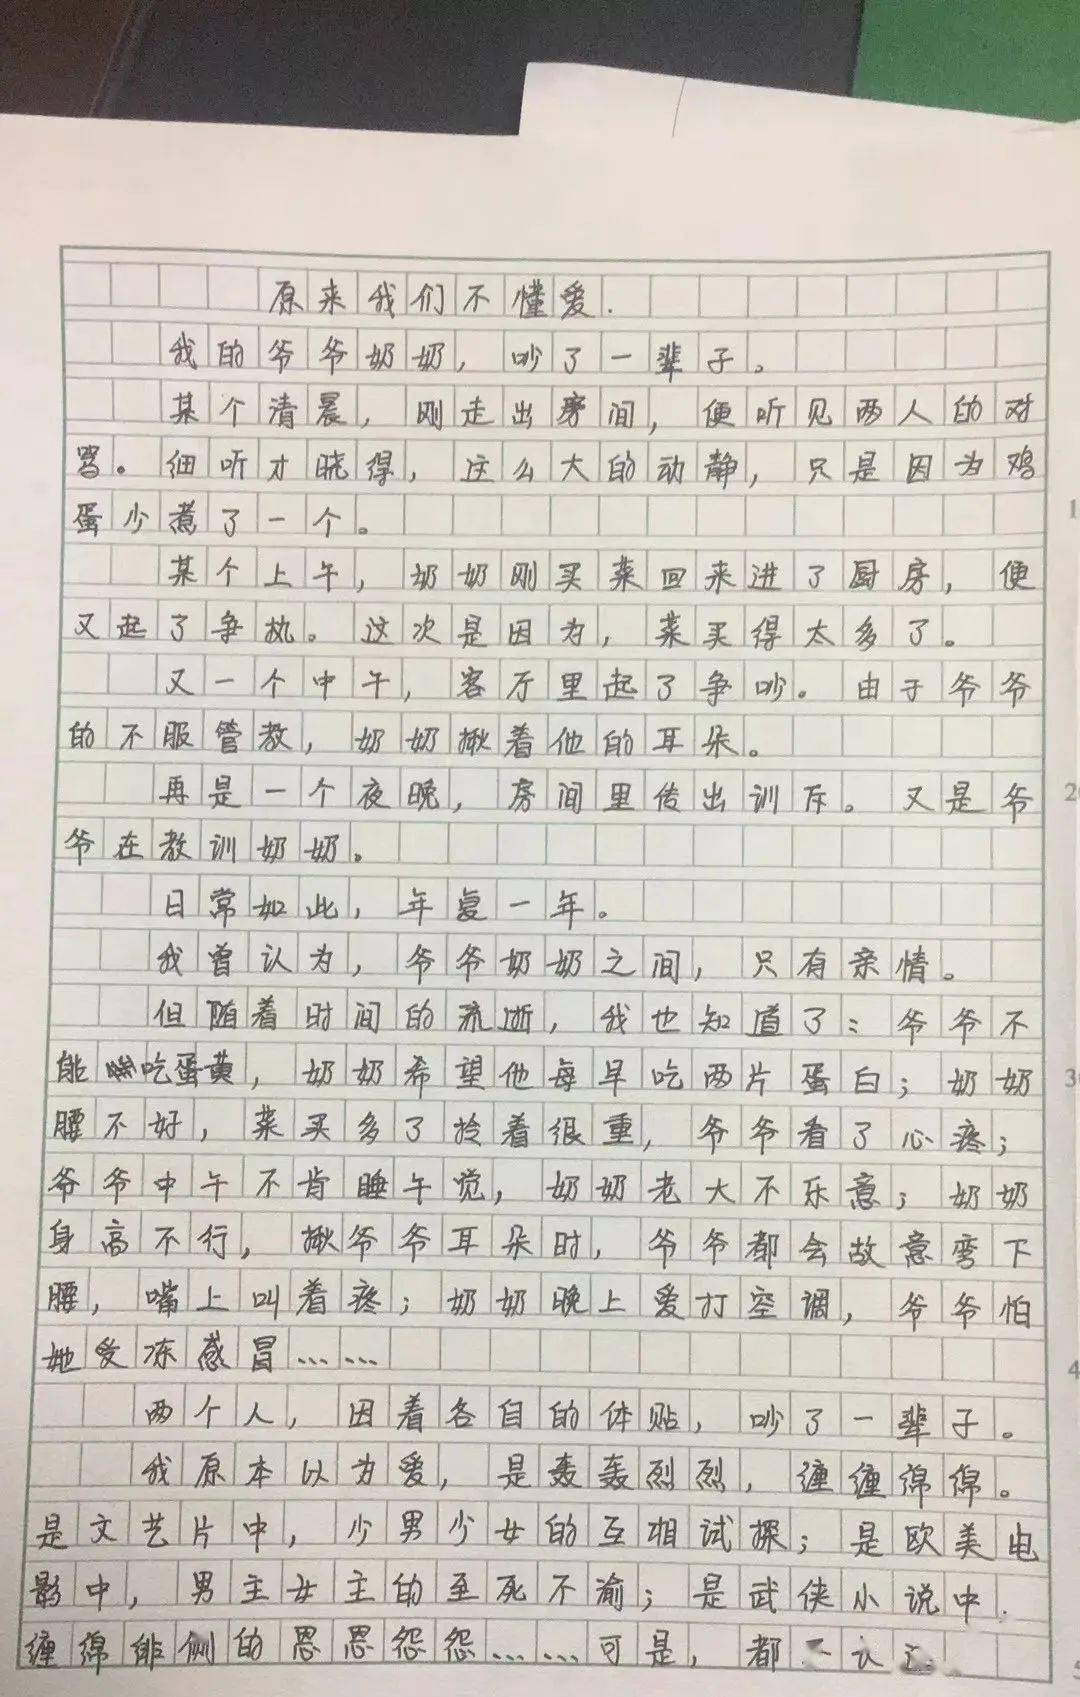 原来我们不懂爱.
我的爷爷奶奶，吵了一辈子。
某个清晨，刚走出房间，便听见两人的对
骂。细听才晓得，这么大的动静，只是因为鸡
蛋少煮了一个。
1
某个上午，奶奶刚买菜回来进了厨房，便
又起了争执。这次是因为，菜买得太多了。
又一个中午，客厅里起了争吵。由于爷爷
的不服管教，奶奶揪着他的耳朵。
再是一个夜晚，房间里传出训斥。又是爷
2
爷在教训奶奶。
日常如此，年复一年。
我曾认为，爷爷奶奶之间，只有亲情。
但随着时间的流逝，我也知道了：爷爷不
能吃蛋黄，奶奶希望他每早吃两片蛋白；奶奶
3
腰不好，菜买多了拎着很重，爷爷看了心疼；
爷爷中午不肯睡午觉，奶奶老大不乐意；奶奶
身高不行，揪爷爷耳朵时，爷爷都会故意弯下
腰，嘴上叫着疼；奶奶晚上爱打空调，爷爷怕
她受冻感冒……
4
两个人，因着各自的体贴，吵了一辈子。
我原本以为爱，是轰轰烈烈，缠缠绵绵。
是文艺片中，少男少女的互相试探；是欧美电
影中，男主女主的至死不渝；是武侠小说中.
缠绵徘恻的恩恩怨怨……可是，都
5